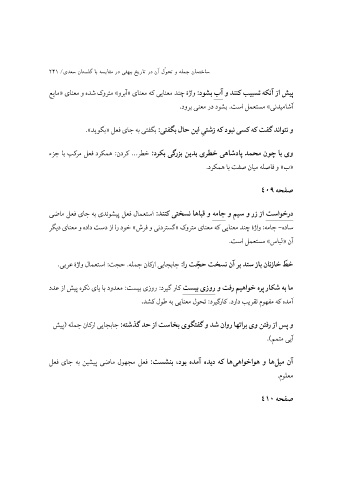 ساختمان جمله و تحوّل آن در تاریخ بیهقی در مقایسه با گلستان سعدی/ ۲۴۱
پیش از آنکه تسبیب کنند و آب بشود: واژهٔ چند معنایی که معنای «آبرو» متروک شده و معنای «مایع
آشامیدنی» مستعمل است. بشود در معنی برود.
و نتواند گفت که کسی نبود که زشتی این حال بگفتی: بگفتی به جای فعل «بگوید».
وی با چون محمد پادشاهی خطری بدین بزرگی بکرد: خطر... کردن: همکرد فعل مرکب با جزء
«ب» و فاصله میان صفت با همکرد.
صفحه ۴۰۹
درخواست از زر و سیم و جامه و قباها نسختی کنند: استعمال فعل پیشوندی به جای فعل ماضی
ساده- جامه: واژهٔ چند معنایی که معنای متروک «گستردنی و فرش» خود را از دست داده و معنای دیگر
آن «لباس» مستعمل است.
خطّ خازنان باز ستد بر آن نسخت حجّت را: جابجایی ارکان جمله. حجت: استعمال واژهٔ عربی.
ما به شکار پره خواهیم رفت و روزی بیست کار گیرد: روزی بیست: معدود با یای نکره پیش از عدد
آمده که مفهوم تقریب دارد. کارگیرد: تحول معنایی به طول کشد.
و پس از رفتن وی براتها روان شد و گفتگوی بخاست از حد گذشته: جابجایی ارکان جمله (پیش
آیی متمم).
آن میل‌ها و هواخواهی‌ها که دیده آمده بود، بنشست: فعل مجهول ماضی پیشین به جای فعل
معلوم.
صفحه ۴۱۰